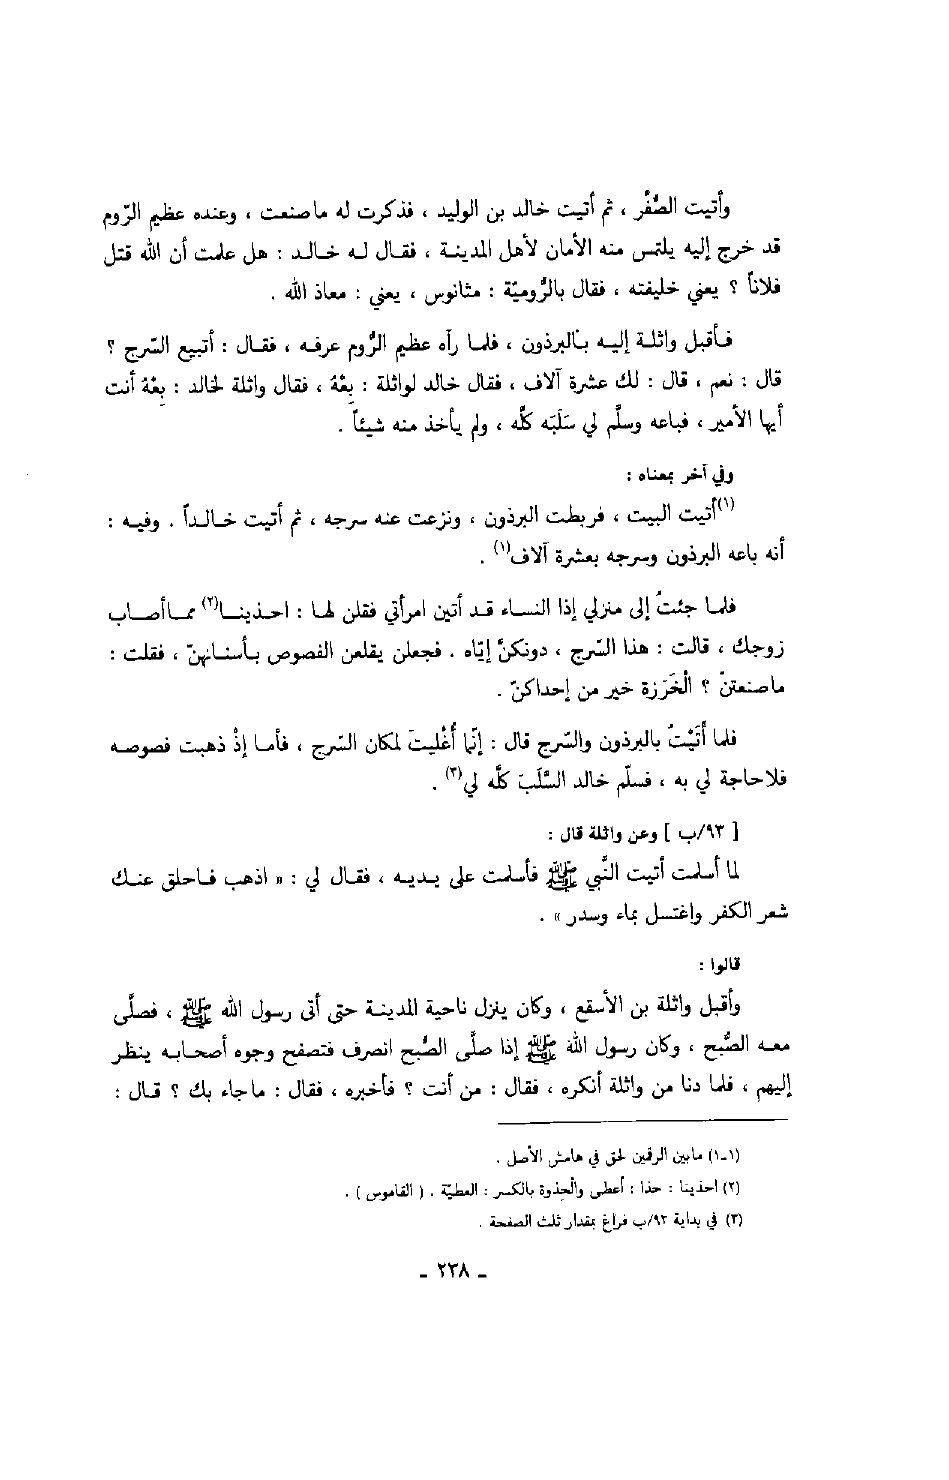 وأتيت الصُّفَّر ، ثم أتيت خالد بن الوليد ، فذكرت له ماصنعت ، وعنده عظيم الرّوم
قد خرج إليه يلتمس منه الأمان لأهل المدينة ، فقال له خالد : هل علمت أن الله قتل
فلاناً ؟ يعني خليفته ، فقال بالرُّوميّة : مثانوس ، يعني : معاذ الله .
فأقبل واثلة إليه بالبرذون ، فلما رآه عظيم الرُّوم عرفه ، فقال : أتبيع السّرج ؟
قال : نعم ، قال : لك عشرة آلاف ، فقال خالد لواثلة : بِعْهُ ، فقال واثلة لخالد : بِعْهُ أنت
أيها الأمير ، فباعه وسلَّم لي سَلَبَه كلَّه ، ولم يأخذ منه شيئاً .
وفي آخر بمعناه :
(١)أتيت البيت ، فربطت البرذون ، ونزعت عنه سرجه ، ثم أتيت خالداً . وفيه :
أنه باعه البرذون وسرجه بعشرة آلاف(١) .
فلما جئتُ إلى منزلي إذا النساء قد أتين امرأتي فقلن لها : احذينا(٢) مماأصاب
زوجك ، قالت : هذا السّرج ، دونكنَّ إيّاه . فجعلن يقلعن الفصوص بأسنانهنّ ، فقلت :
ماصنعتنّ ؟ الْخَرَزة خير من إحداكنّ .
فلما أتَيْتُ بالبرذون والسّرج قال : إنّما أُغْليتَ لمكان السّرج ، فأما إذْ ذهبت فصوصه
فلاحاجة لي به ، فسلّم خالد السَّلَبَ كلَّه لي(٣) .
[ ٩٣/ب ] وعن واثلة قال :
لما أسلمت أتيت النَّبي ﷺ فأسلمت على يديه ، فقال لي : « اذهب فاحلق عنك
شعر الكفر واغتسل بماء وسدر » .
قالوا :
وأقبل واثلة بن الأسقع ، وكان ينزل ناحية المدينة حتى أتى رسول الله ﷺ ، فصلَّى
معه الصُّبح ، وكان رسول الله ﷺ إذا صلَّى الصُّبح انصرف فتصفح وجوه أصحابه ينظر
إليهم ، فلما دنا من واثلة أنكره ، فقال : من أنت ؟ فأخبره ، فقال : ماجاء بك ؟ قال :
(١-١) مابين الرقمين لحق في هامش الأصل .
(٢) احذينا : حذا : أعطى والحذوة بالكسر : العطيّة . ( القاموس ) .
(٣) في بداية ٩٣/ب فراغ بمقدار ثلث الصفحة .
- ٢٣٨ -